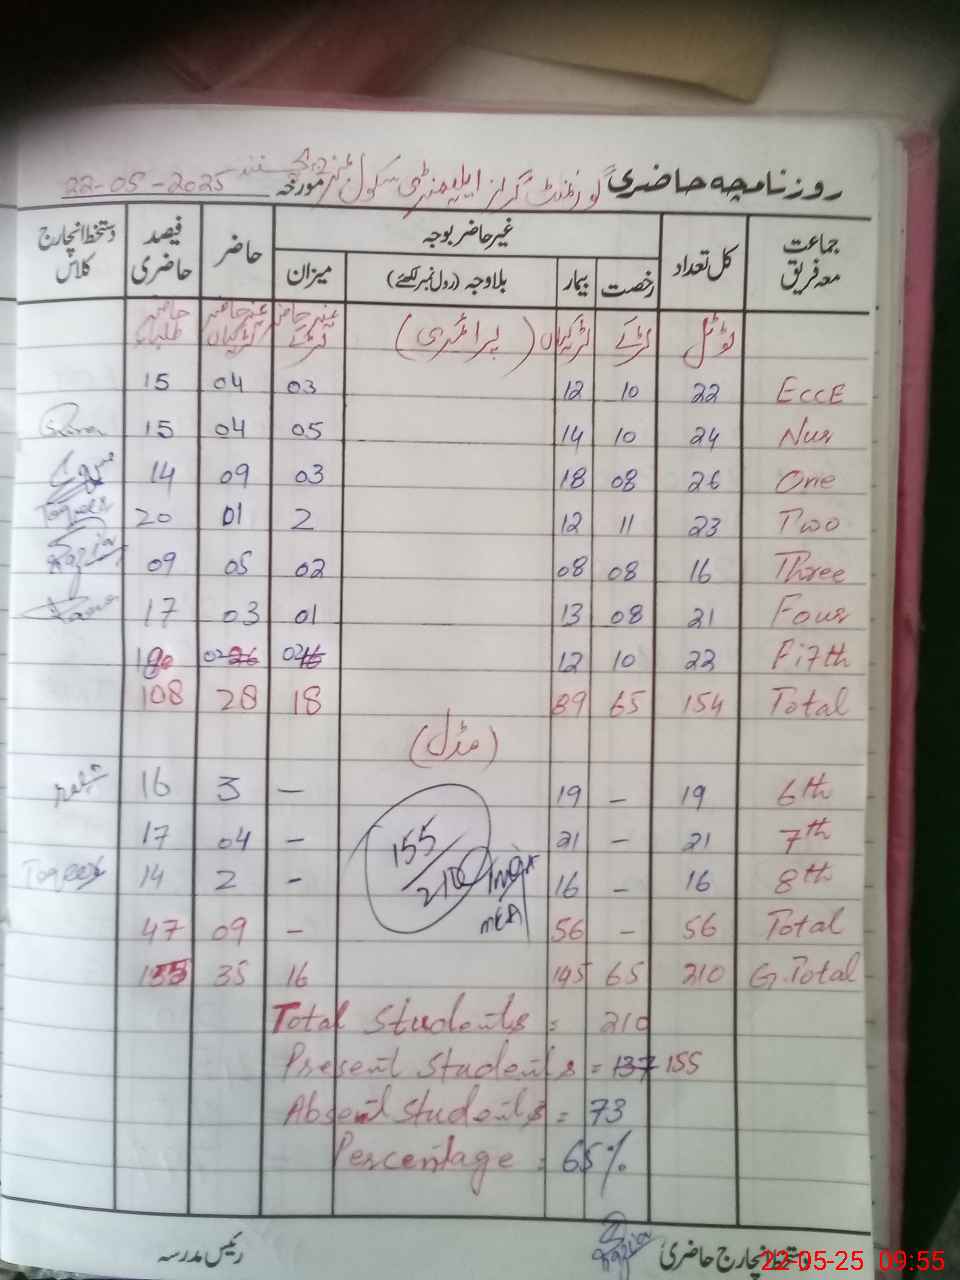 روزنامچہ حاضری گورنمنٹ گرلز ایلیمنٹری سکول مورخہ 22-05-2025
جماعت معہ فریق کل تعداد غیر حاضر بوجہ حاضر فیصد حاضری دستخط انچارج کلاس
رخصت بیمار بلاوجہ (رول نمبر لکھئے) میزان
ٹوٹل لڑکے لڑکیاں (پرائمری) غیر حاضر لڑکے غیر حاضر لڑکیاں حاضر طلباء
EccE 22 10 12 03 04 15
Nur 24 10 14 05 04 15
One 26 08 18 03 09 14
Two 23 11 12 2 01 20 Toqeer
Three 16 08 08 02 05 09 Razia
Four 21 08 13 01 03 17
Fifth 22 10 12 02 02 18
Total 154 65 89 18 28 108
(مڈل)
6th 19 – 19 – 3 16
7th 21 – 21 – 04 17
8th 16 – 16 – 2 14 Toqeer
155/210
MEA
Total 56 – 56 – 09 47
G.Total 210 65 145 16 35 155
Total Students = 210
Present Students = 137 155
Absent Students = 73
Percentage = 65%
دستخط انچارج حاضری Razia رئیس مدرسہ
22-05-25 09:55